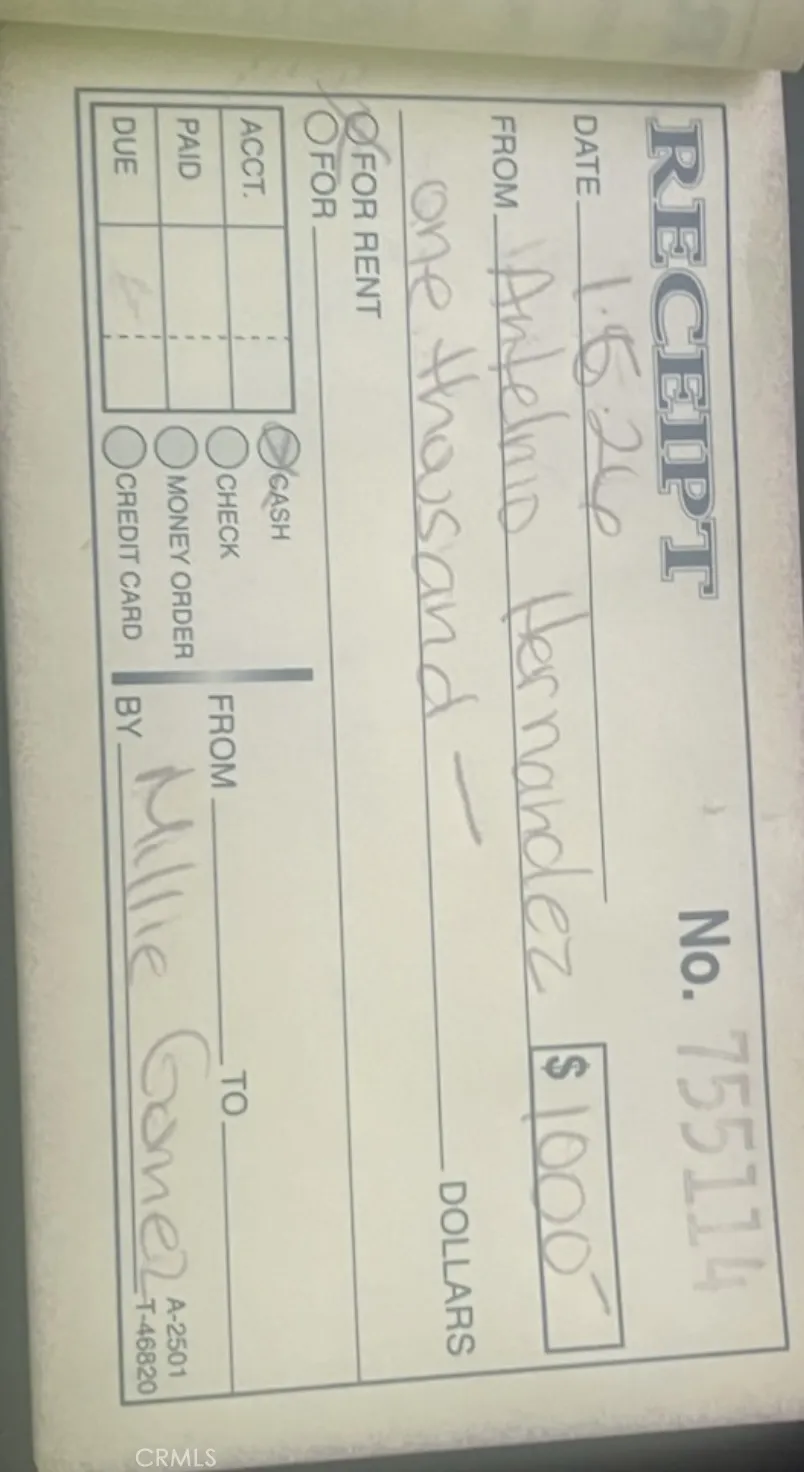 RECEIPT No. 755114
DATE 1.8.26
FROM Antelmo Hernandez $ 1000
one thousand — DOLLARS
FOR RENT
FOR
ACCT. CASH
PAID CHECK
DUE MONEY ORDER
CREDIT CARD
FROM TO
BY Millie Gomez
A-2501
T-46820
CRMLS